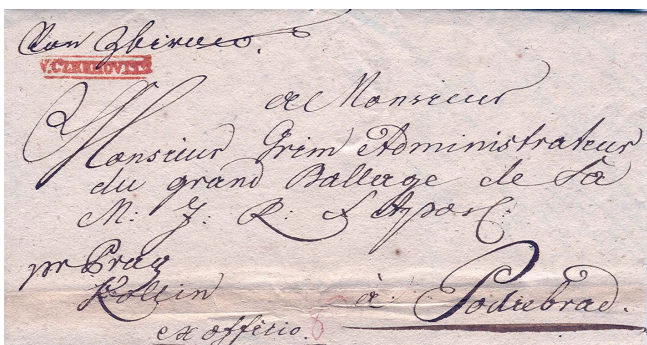 Von Zbirow.
V. CZERHOVITZ
a Monsieur
Monsieur Grim Administrateur
du grand Balliage de Sa
M: J: R: & Apos:
pr Prag
Kollin
à: Podiebrad.
ex offitio.
8